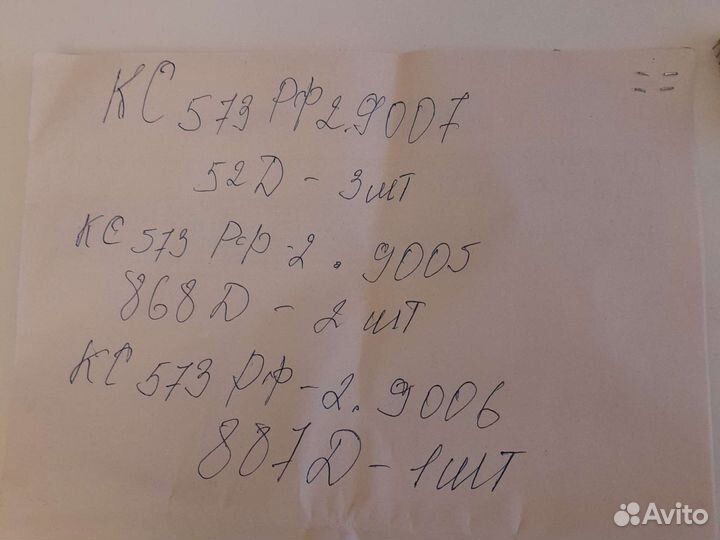 КС 573 РФ 2.9007
52D - 3 шт
КС 573 РФ-2. 9005
868 D - 2 шт
КС 573 РФ-2. 9006
887 D - 1 шт
Avito